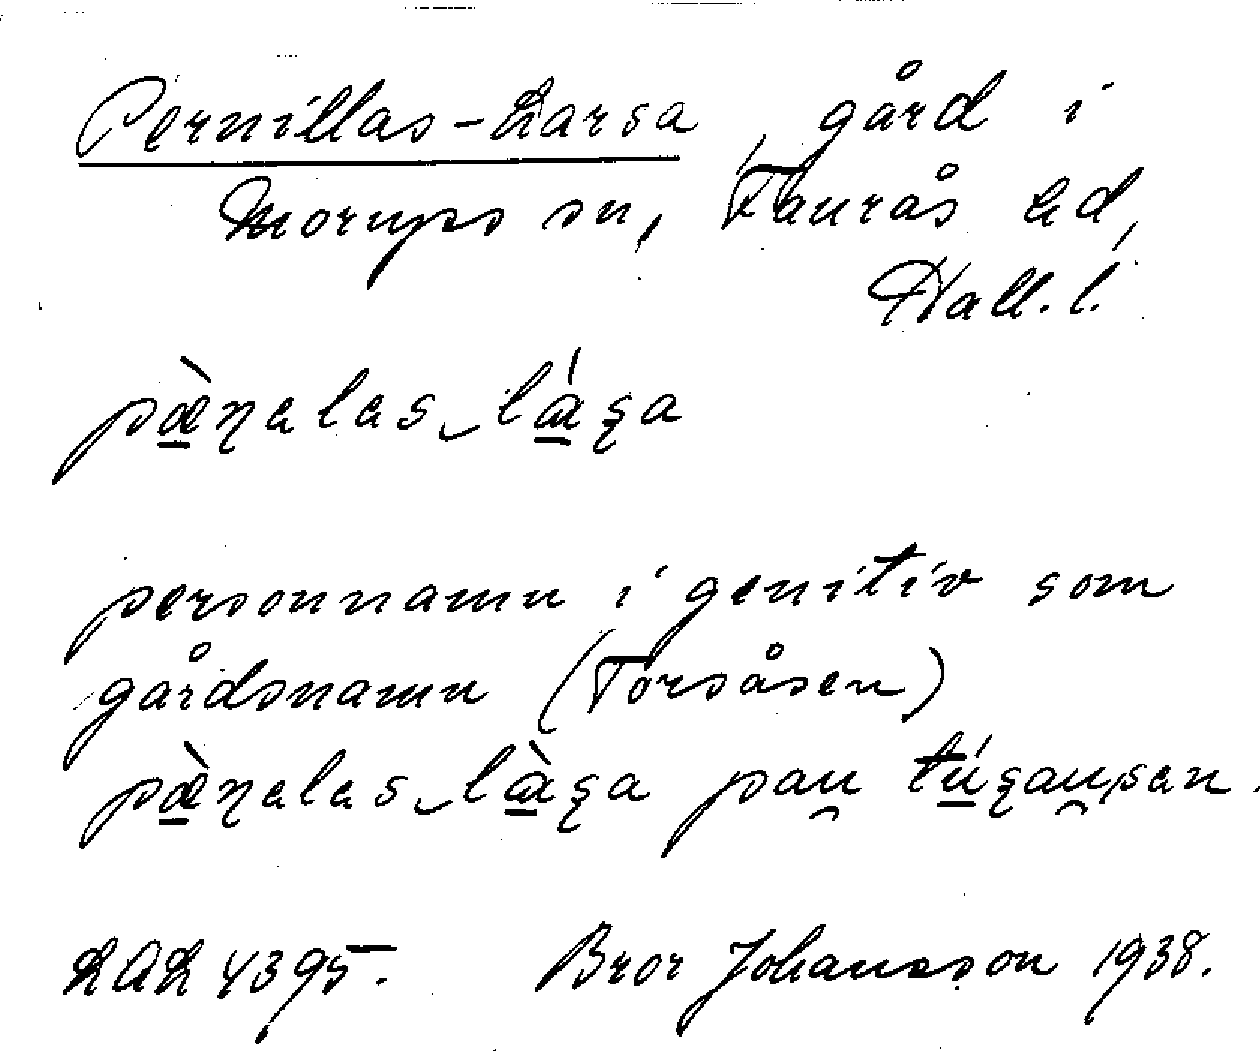 Pernillas-Larsa, gård i
Morups sn, Faurås hd,
Hall. l.
pæ̀ɳalas‿lása
personnamn i genitiv som
gårdsnamn (Torsåsen)
pæ̀ɳalas‿làsa pau túsausan.
LAL 4395. Bror Johansson 1938.